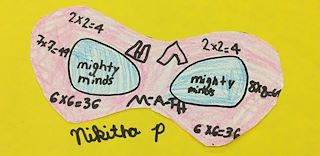 2x2=4
7x7=49
mighty
minds
6x6=36
M-A-TH
2x2=4
mighty
minds
8x8=64
6x6=36
Nikitha P